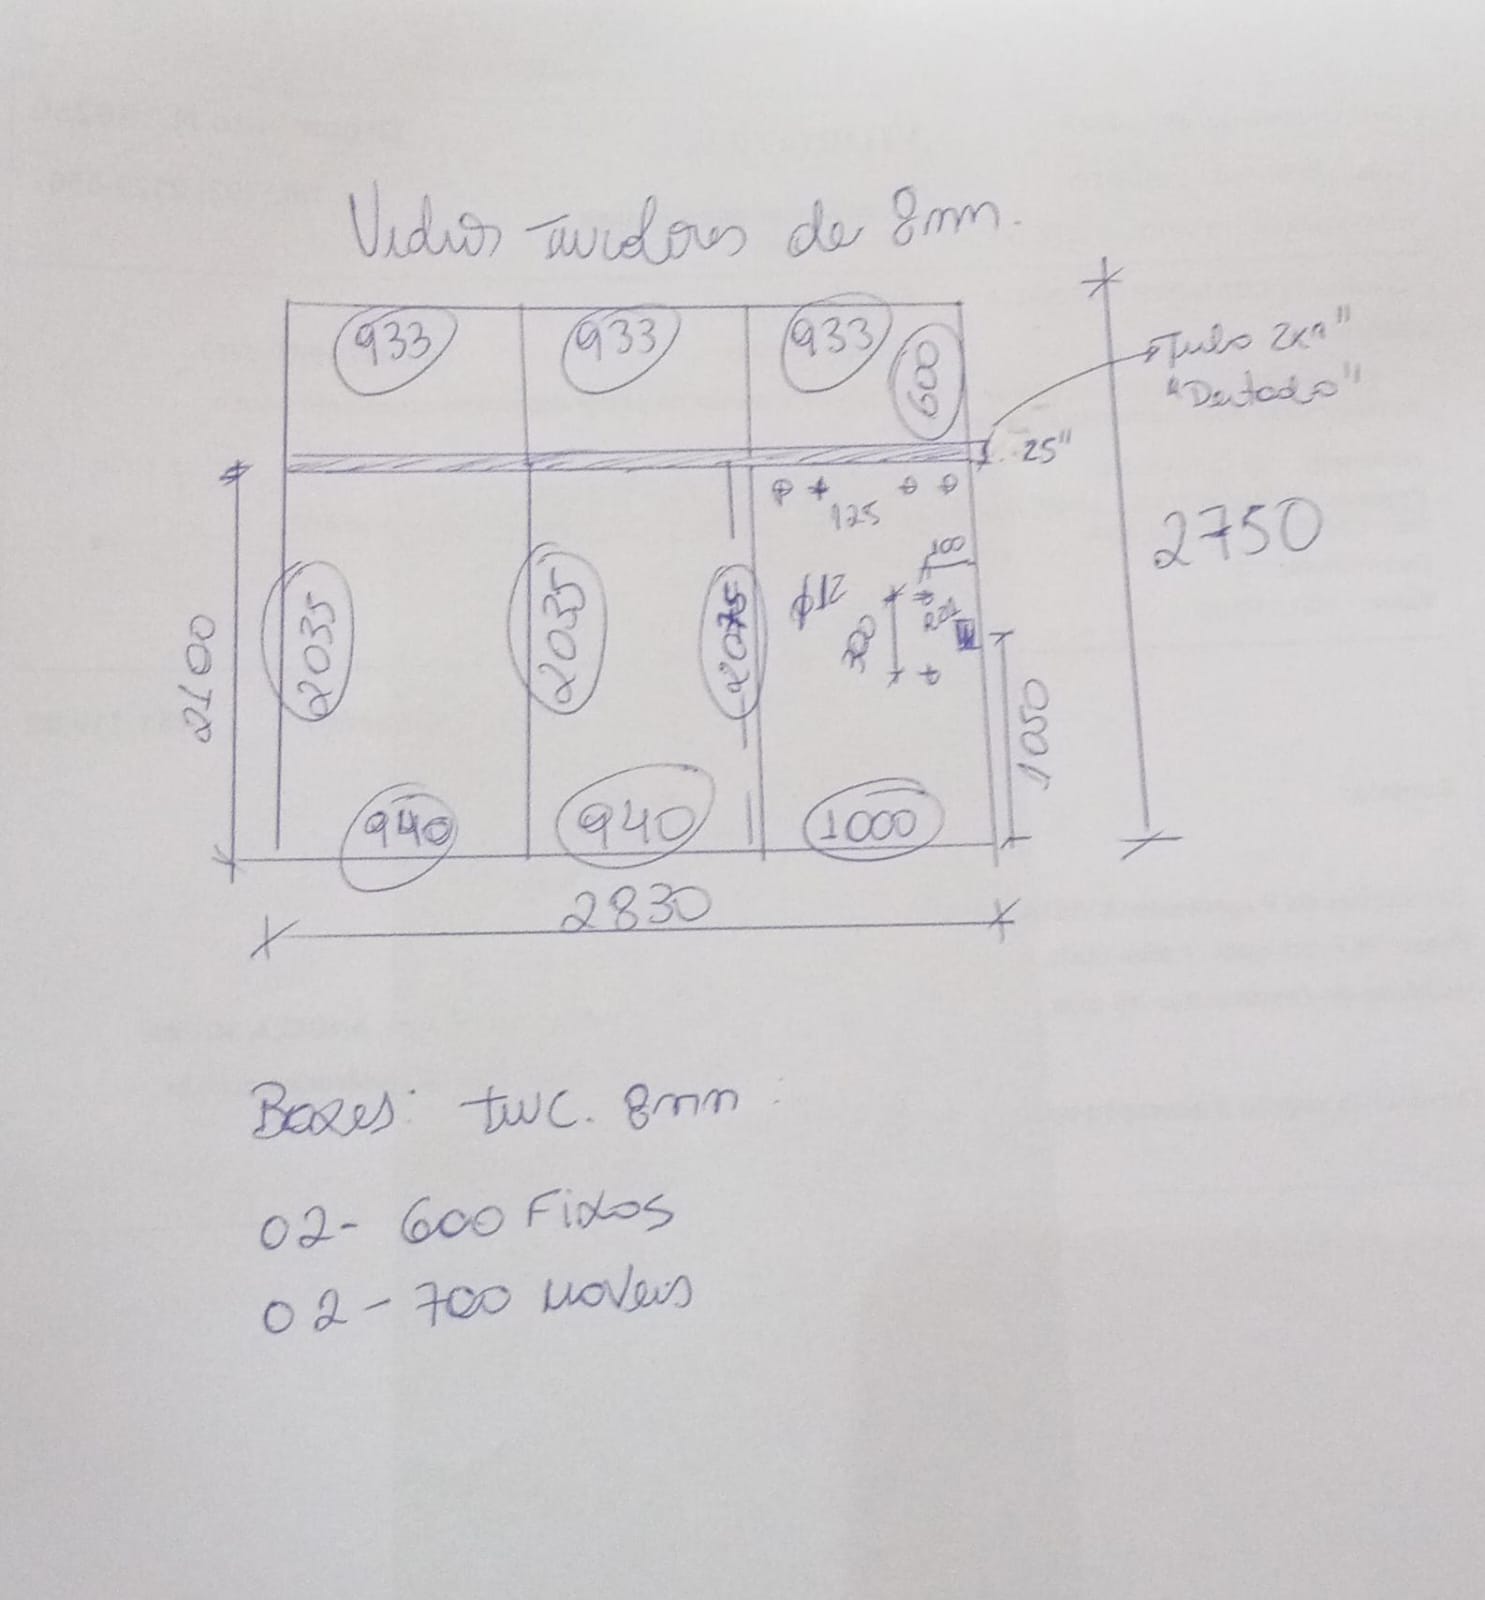 Vidros incolores de 8mm.
933 933 933
600
Tubo 2x1"
"Deitado"
25"
125
2750
100
φ12
2100
2035
2035
2075
300
1050
940 940 1000
2830
Boxes: inc. 8mm:
02- 600 Fixos
02- 700 Moveis